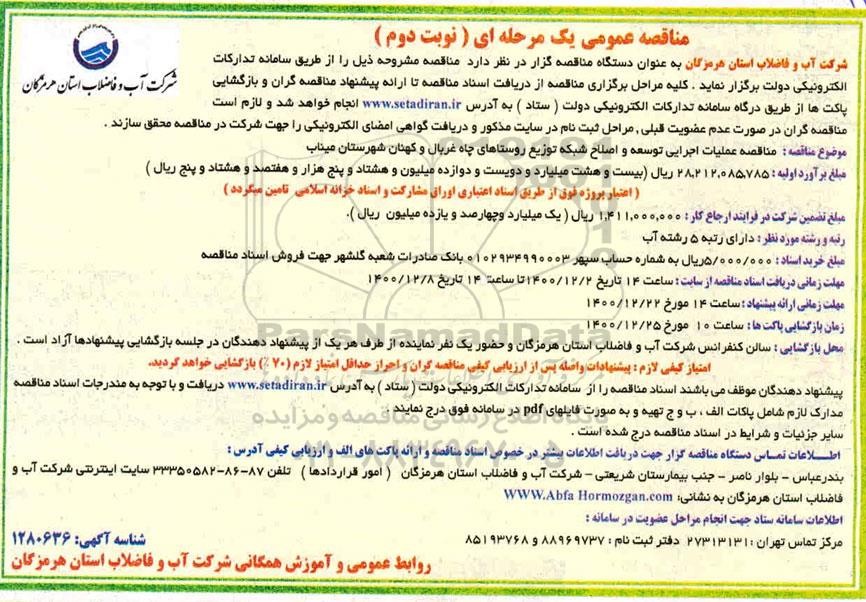 مناقصه عمومی یک مرحله ای ( نوبت دوم )
شرکت آب و فاضلاب استان هرمزگان
شرکت آب و فاضلاب استان هرمزگان به عنوان دستگاه مناقصه گزار در نظر دارد مناقصه مشروحه ذیل را از طریق سامانه تدارکات
الکترونیکی دولت برگزار نماید . کلیه مراحل برگزاری مناقصه از دریافت اسناد مناقصه تا ارائه پیشنهاد مناقصه گران و بازگشایی
پاکت ها از طریق درگاه سامانه تدارکات الکترونیکی دولت ( ستاد ) به آدرس www.setadiran.ir انجام خواهد شد و لازم است
مناقصه گران در صورت عدم عضویت قبلی , مراحل ثبت نام در سایت مذکور و دریافت گواهی امضای الکترونیکی را جهت شرکت در مناقصه محقق سازند .
موضوع مناقصه : مناقصه عملیات اجرایی توسعه و اصلاح شبکه توزیع روستاهای چاه غربال و کهنان شهرستان میناب
مبلغ برآورد اولیه : ۲۸,۲۱۲,۰۸۵,۷۸۵ ریال (بیست و هشت میلیارد و دویست و دوازده میلیون و هشتاد و پنج هزار و هفتصد و هشتاد و پنج ریال )
( اعتبار پروژه فوق از طریق اسناد اعتباری اوراق مشارکت و اسناد خزانه اسلامی تامین میگردد )
مبلغ تضمین شرکت در فرایند ارجاع کار : ۱,۴۱۱,۰۰۰,۰۰۰ ریال ( یک میلیارد وچهارصد و یازده میلیون ریال ).
رتبه و رشته مورد نظر : دارای رتبه ۵ رشته آب
مبلغ خرید اسناد : ۵/۰۰۰/۰۰۰ریال به شماره حساب سپهر ۰۱۰۲۹۳۴۹۹۰۰۰۳ بانک صادرات شعبه گلشهر جهت فروش اسناد مناقصه
مهلت زمانی دریافت اسناد مناقصه از سایت : ساعت ۱۴ تاریخ ۱۴۰۰/۱۲/۲ تا ساعت ۱۴ تاریخ ۱۴۰۰/۱۲/۸
مهلت زمانی ارائه پیشنهاد : ساعت ۱۴ مورخ ۱۴۰۰/۱۲/۲۲
زمان بازگشایی پاکت ها : ساعت ۱۰ مورخ ۱۴۰۰/۱۲/۲۵
محل بازگشایی : سالن کنفرانس شرکت آب و فاضلاب استان هرمزگان و حضور یک نفر نماینده از طرف هر یک از پیشنهاد دهندگان در جلسه بازگشایی پیشنهادها آزاد است .
امتیاز کیفی لازم : پیشنهادات واصله پس از ارزیابی کیفی مناقصه گران و احراز حداقل امتیاز لازم ( ۷۰ ) بازگشایی خواهد گردید.
پیشنهاد دهندگان موظف می باشند اسناد مناقصه را از سامانه تدارکات الکترونیکی دولت ( ستاد ) به آدرس www.setadiran.ir دریافت و با توجه به مندرجات اسناد مناقصه
مدارک لازم شامل پاکات الف ، ب و ج تهیه و به صورت فایلهای pdf در سامانه فوق درج نمایند .
سایر جزئیات و شرایط در اسناد مناقصه درج شده است .
اطلاعات تماس دستگاه مناقصه گزار جهت دریافت اطلاعات بیشتر در خصوص اسناد مناقصه و ارائه پاکت های الف و ارزیابی کیفی آدرس :
بندرعباس - بلوار ناصر - جنب بیمارستان شریعتی – شرکت آب و فاضلاب استان هرمزگان ( امور قراردادها ) تلفن ۸۷-۸۶-۳۳۳۵۰۵۸۲ سایت اینترنتی شرکت آب و
فاضلاب استان هرمزگان به نشانی: WWW.Abfa Hormozgan.com
اطلاعات سامانه ستاد جهت انجام مراحل عضویت در سامانه :
مرکز تماس تهران : ۲۷۳۱۳۱۳۱ دفتر ثبت نام : ۸۸۹۶۹۷۳۷ و ۸۵۱۹۳۷۶۸
شناسه آگهی: ۱۲۸۰۶۳۶
روابط عمومی و آموزش همگانی شرکت آب و فاضلاب استان هرمزگان
ParsNamadData
پایگاه اطلاع رسانی مناقصه و مزایده